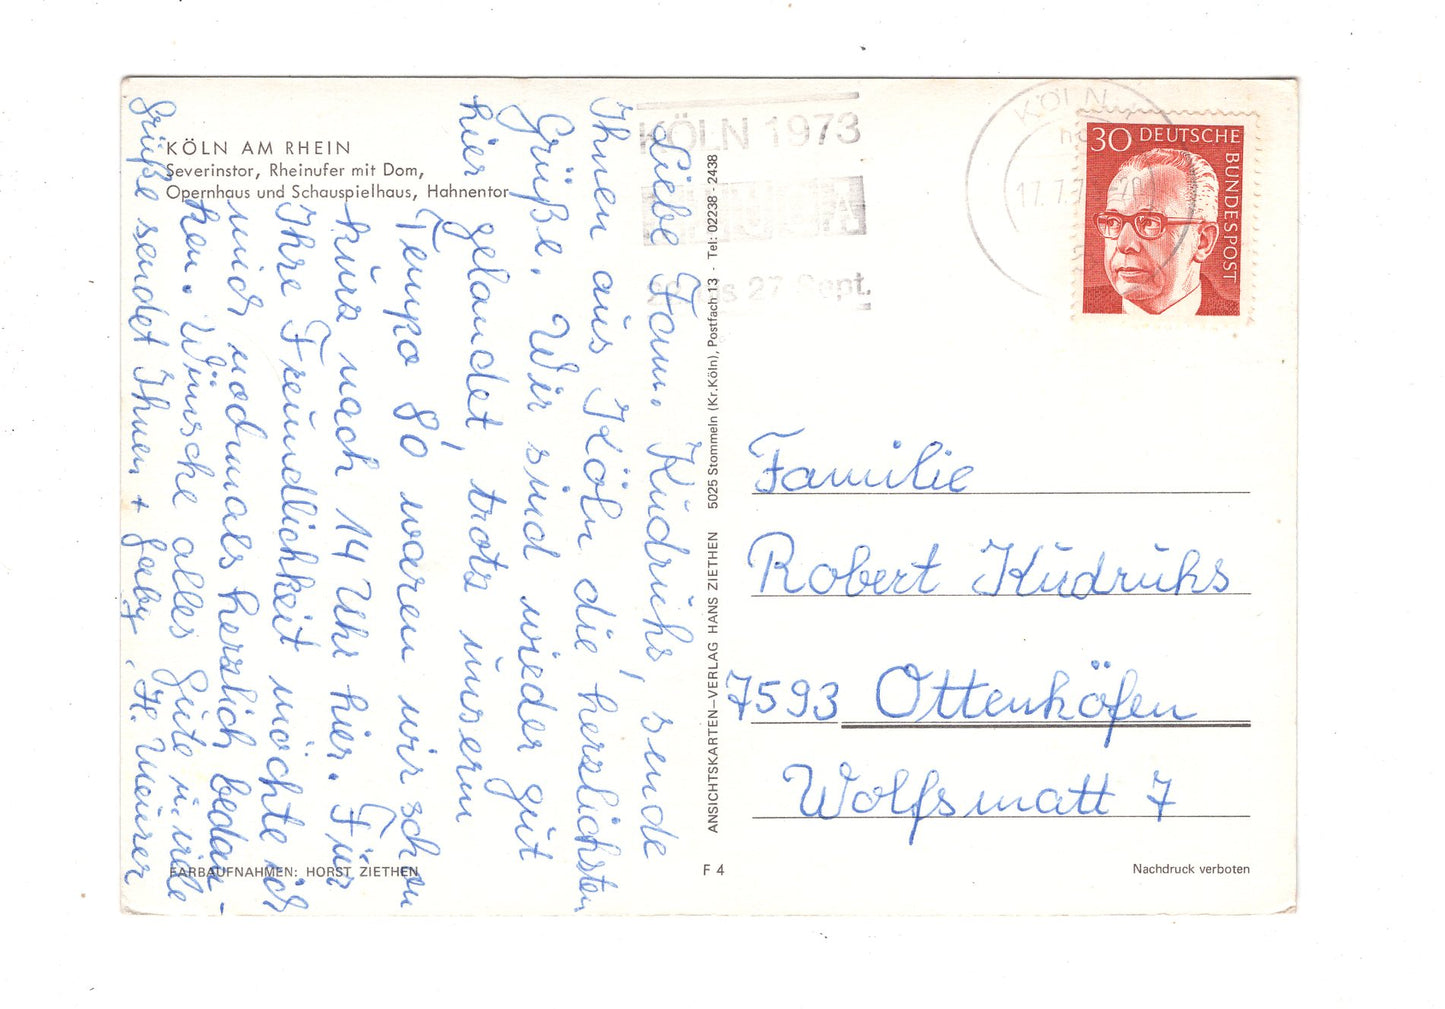 KÖLN AM RHEIN
Severinstor, Rheinufer mit Dom,
Opernhaus und Schauspielhaus, Hahnentor
Liebe Fam. Kudruhs, sende
Ihnen aus Köln die herzlichsten
Grüße. Wir sind wieder gut
hier gelandet, trotz unserm
Tempo 80, waren wir schon
kurz nach 14 Uhr hier. Für
Ihre Freundlichkeit möchte ich
mich nochmals herzlich bedan-
ken. Wünsche alles Gute u. viele
Grüße sendet Ihnen + Gaby, H. Meurer
FARBAUFNAHMEN: HORST ZIETHEN
ANSICHTSKARTEN–VERLAG HANS ZIETHEN 5025 Stommeln (Kr. Köln), Postfach 13 · Tel: 02238 · 2438
F 4
KÖLN 1973
27 Sept.
KÖLN
17.7.7
30 DEUTSCHE
BUNDESPOST
Familie
Robert Kudruhs
7593 Ottenhöfen
Wolfsmatt 7
Nachdruck verboten